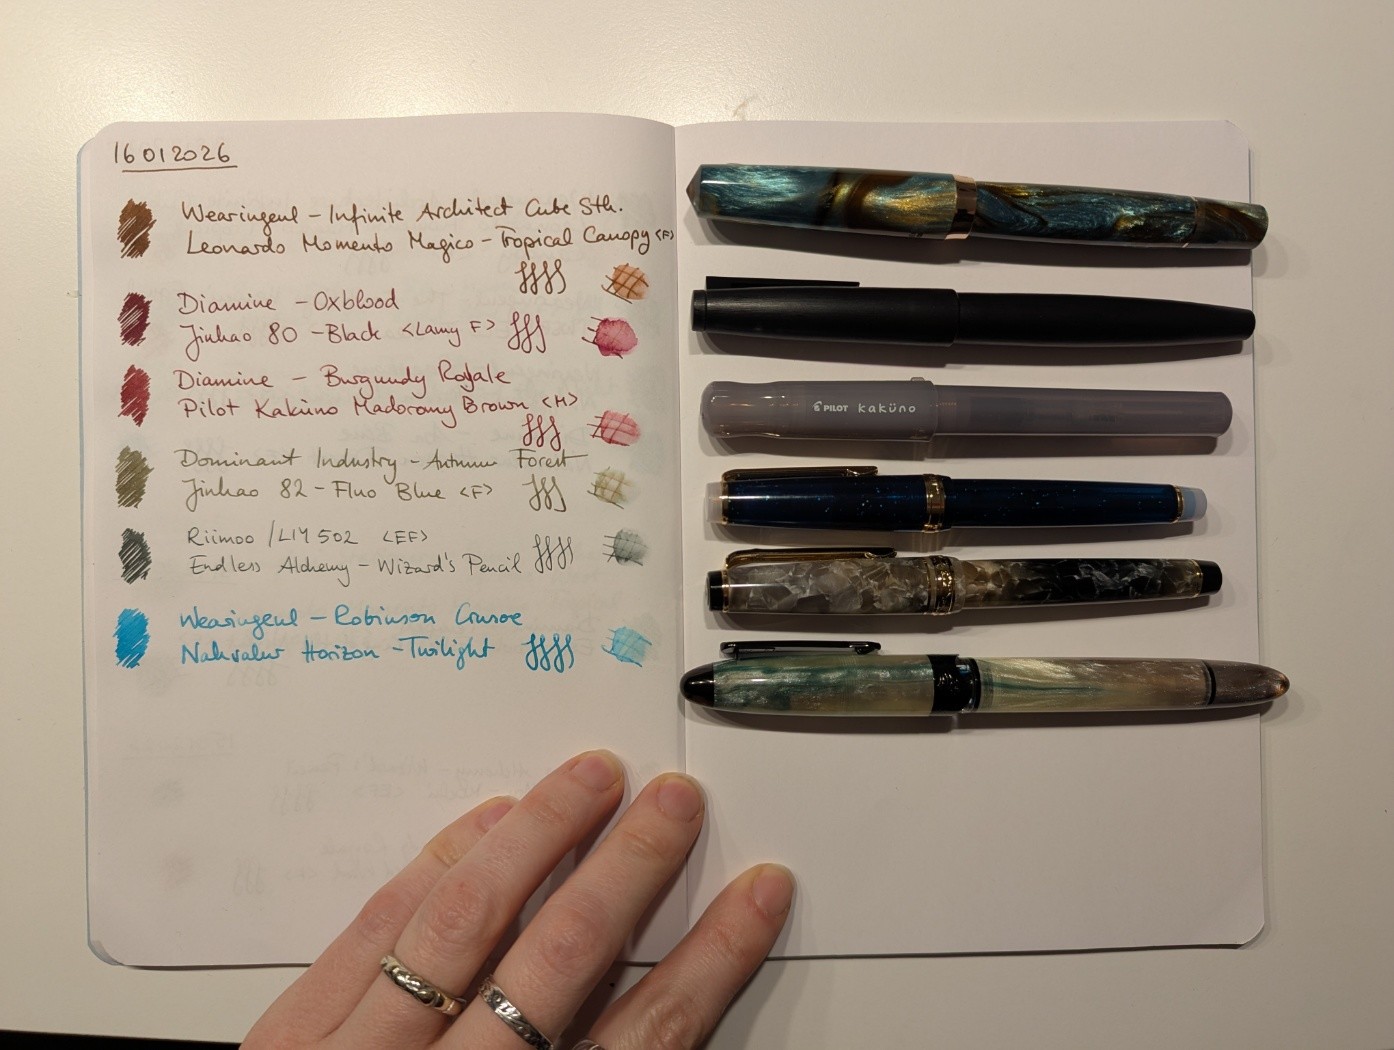 16012026
Wearingeul - Infinite Architect Cube Sth.
Leonardo Momento Magico - Tropical Canopy <F>
Diamine - Oxblood
Jinhao 80 - Black <Lamy F>
Diamine - Burgundy Royale
Pilot Kaküno Madoromy Brown <M>
Dominant Industry - Autumn Forest
Jinhao 82 - Fluo Blue <F>
Riimoo / LIY 502 <EF>
Endless Alchemy - Wizard's Pencil
Wearingeul - Robinson Crusoe
Nahvalur Horizon - Twilight
PILOT kaküno